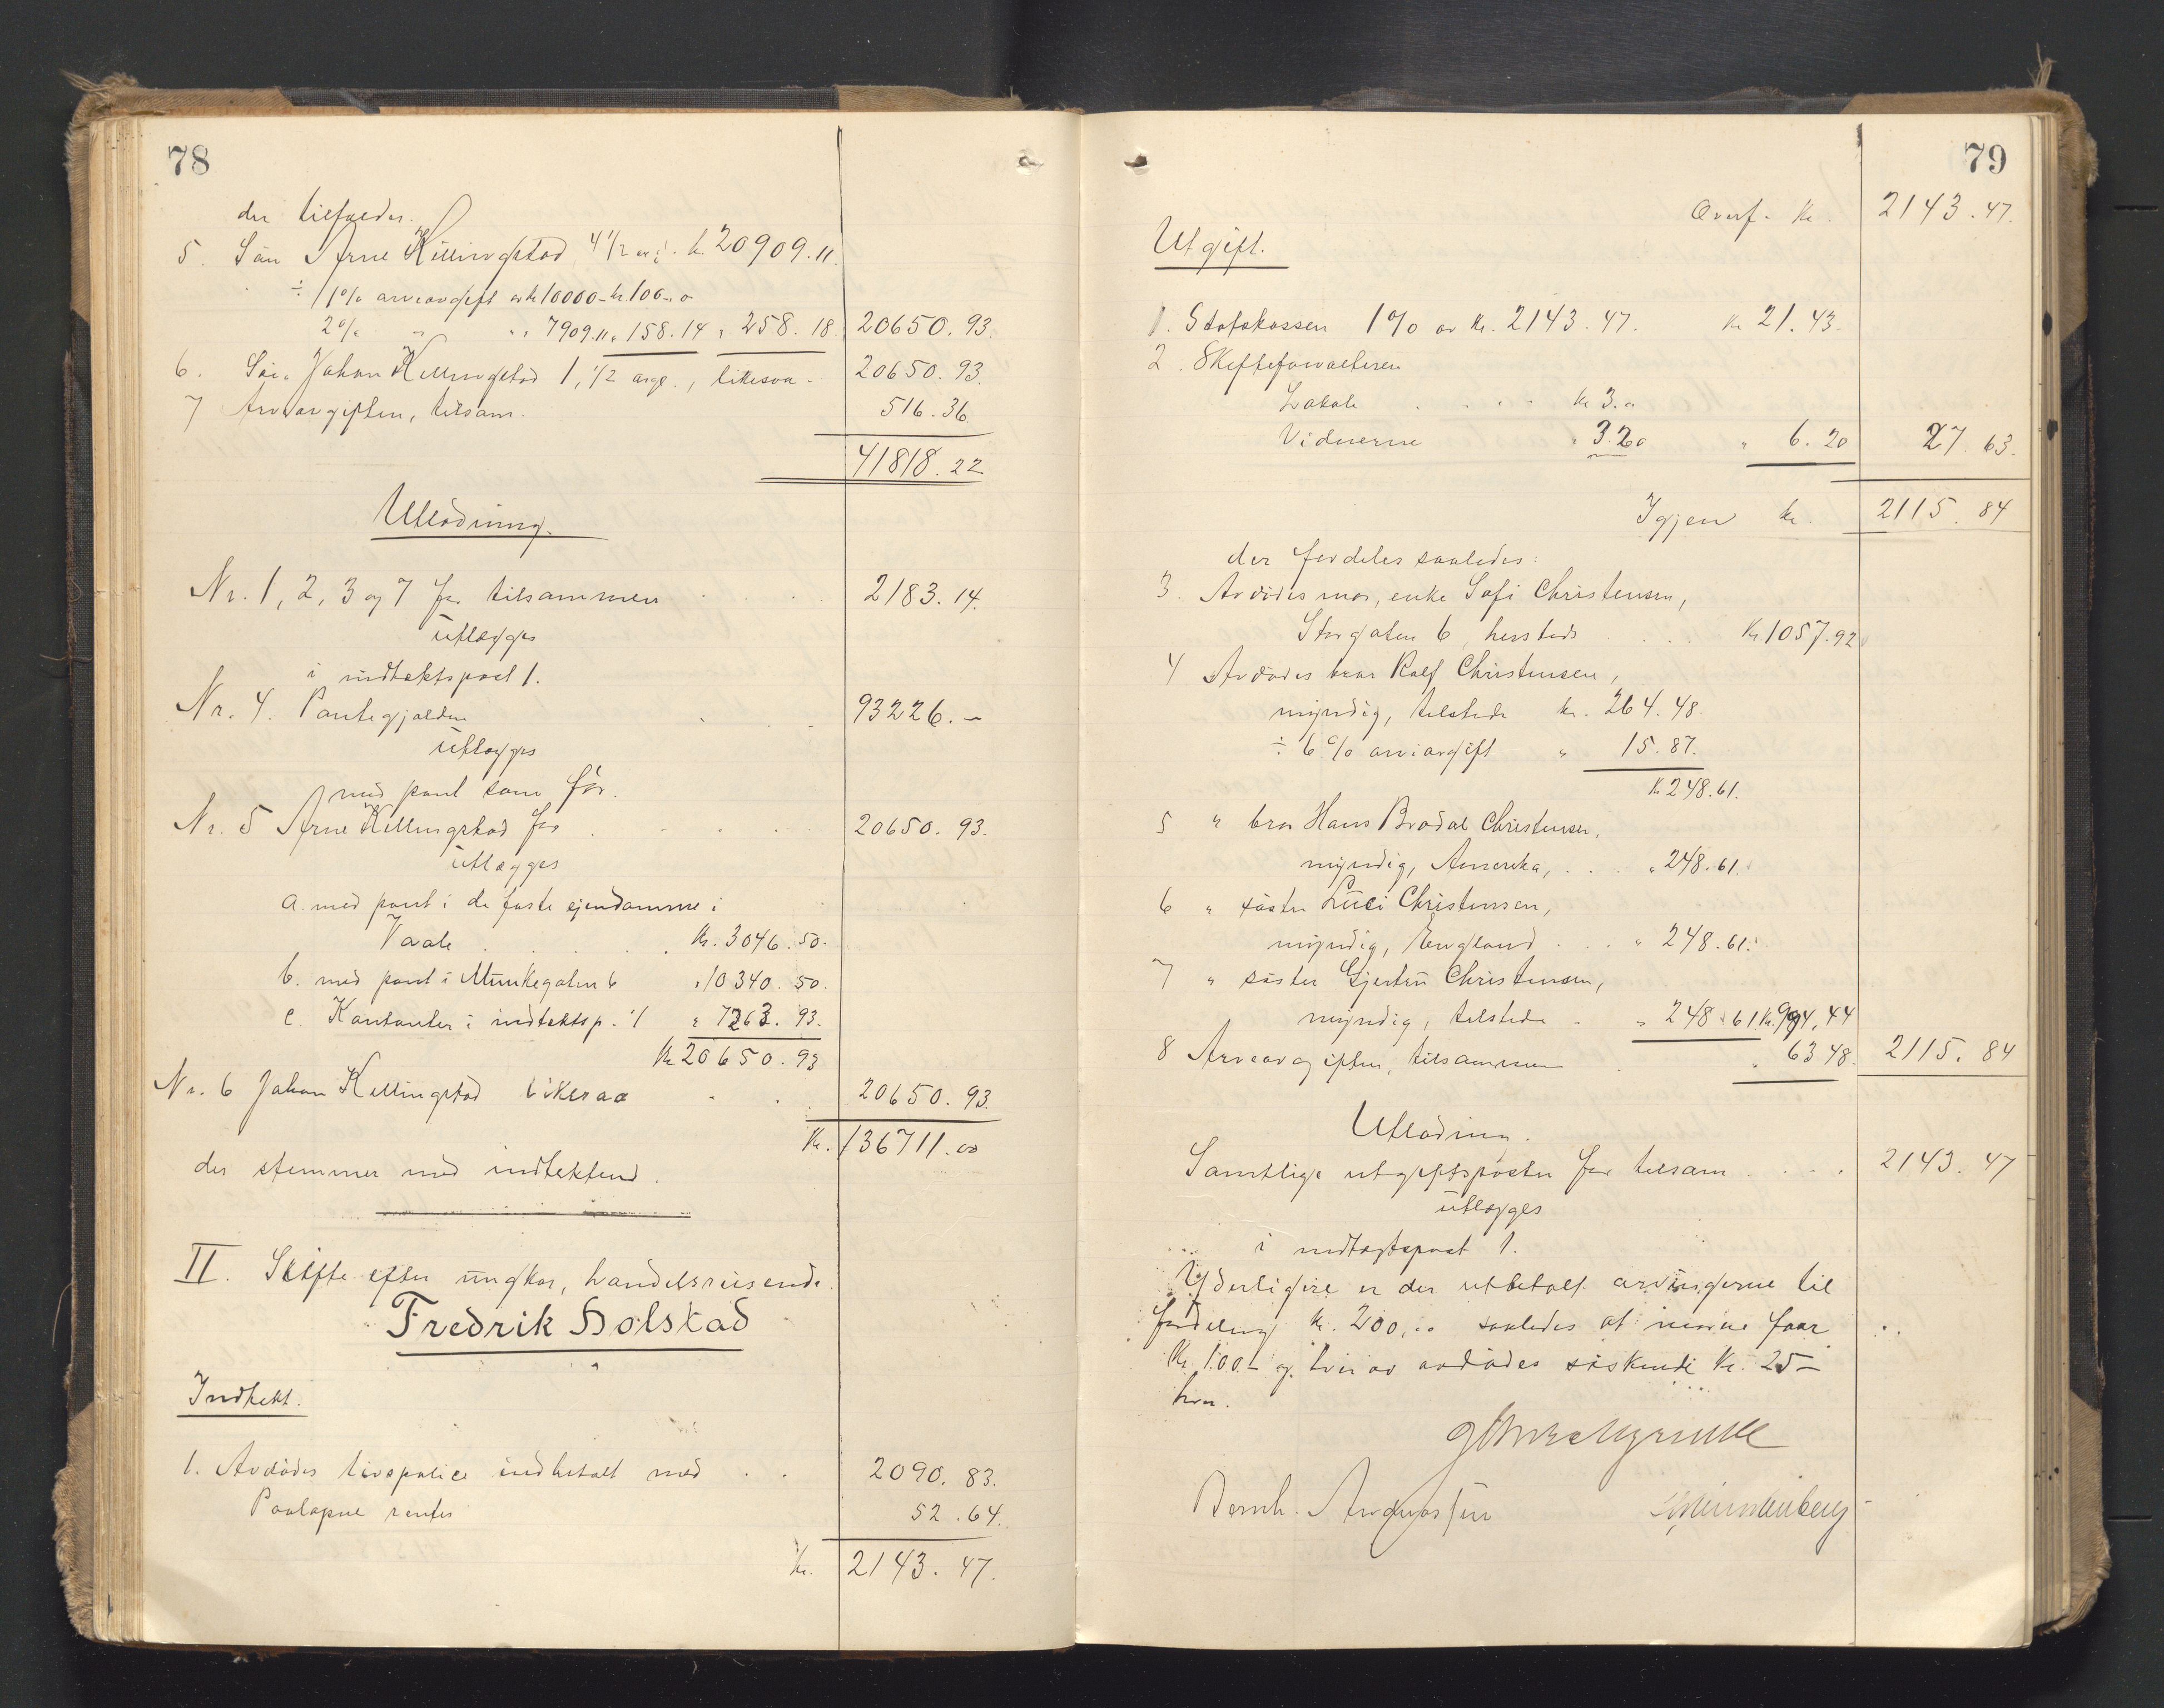 78
der tilfalder.
5. Søn Arne Killingstad, 4 1/2 kr. 20909.11.
÷ 1% arveavgift av kr 10000 – kr. 100.00
2% " " 7909.11 " 158.14 " 258.18. 20650.93.
6. Søn Johan Killingstad 1, 1/2 likesaa - 20650.93.
7 Arveavgiften, tilsam. 516.36
41818.22
Utlodning.
Nr. 1, 2, 3 og 7 faar tilsammen 2183.14.
utlægges
i indtektspost 1.
Nr. 4. Pantegjælden 93226.–
utlægges
med pant som før.
Nr. 5 Arne Killingstad faar 20650.93.
utlægges
a. med pant i de faste ejendomme i
Vaale Kr. 3046.50.
b. med pant i Munkegaten 6 " 10340.50.
c. Kontanter i indtektsp. 1 " 7263.93.
Kr 20650.93
Nr. 6 Johan Killingstad likesaa 20650.93.
Kr. 136711.00
der stemmer med indtekten.
II. Skifte efter ungkar, handelsreisende
Fredrik Holstad
Indtekt.
1. Avdødes livspolice indbetalt med 2090.83.
Paaløpne renter 52.64.
Kr. 2143.47.
79
Overf. Kr. 2143.47.
Utgift.
1. Statskassen 1% av kr. 2143.47. kr 21.43.
2. Skifteforvalteren
Lokale kr 3.00
Vidnerne " 3.20 " 6.20 27.63.
Igjen kr. 2115.84
der fordeles saaledes:
3. Avdødes mor, enke Sofi Christensen,
Storgaten 6, hersteds Kr. 1057.92
4 Avdødes bror Rolf Christensen,
myndig, tilstede kr. 264.48.
÷ 6% arveavgift " 15.87.
Kr. 248.61.
5 " bror Hans Brodal Christensen,
myndig, Amerika, " 248.61.
6 " søster Luci Christensen,
myndig, England " 248.61.
7 " søster Gjertru Christensen,
myndig, tilstede " 248.61 Kr. 994.44
8 Arveavgiften, tilsammen " 63.48. 2115.84
Utlodning.
Samtlige utgiftsposter faar tilsam. 2143.47
utlægges
i indtægtspost 1.
Yderligere er der utbetalt arvingerne til
fordeling kr. 200,00 saaledes at moren faar
Kr. 100.– og hver av avdødes søskende kr. 25–
hver.
Bernh. Andersen